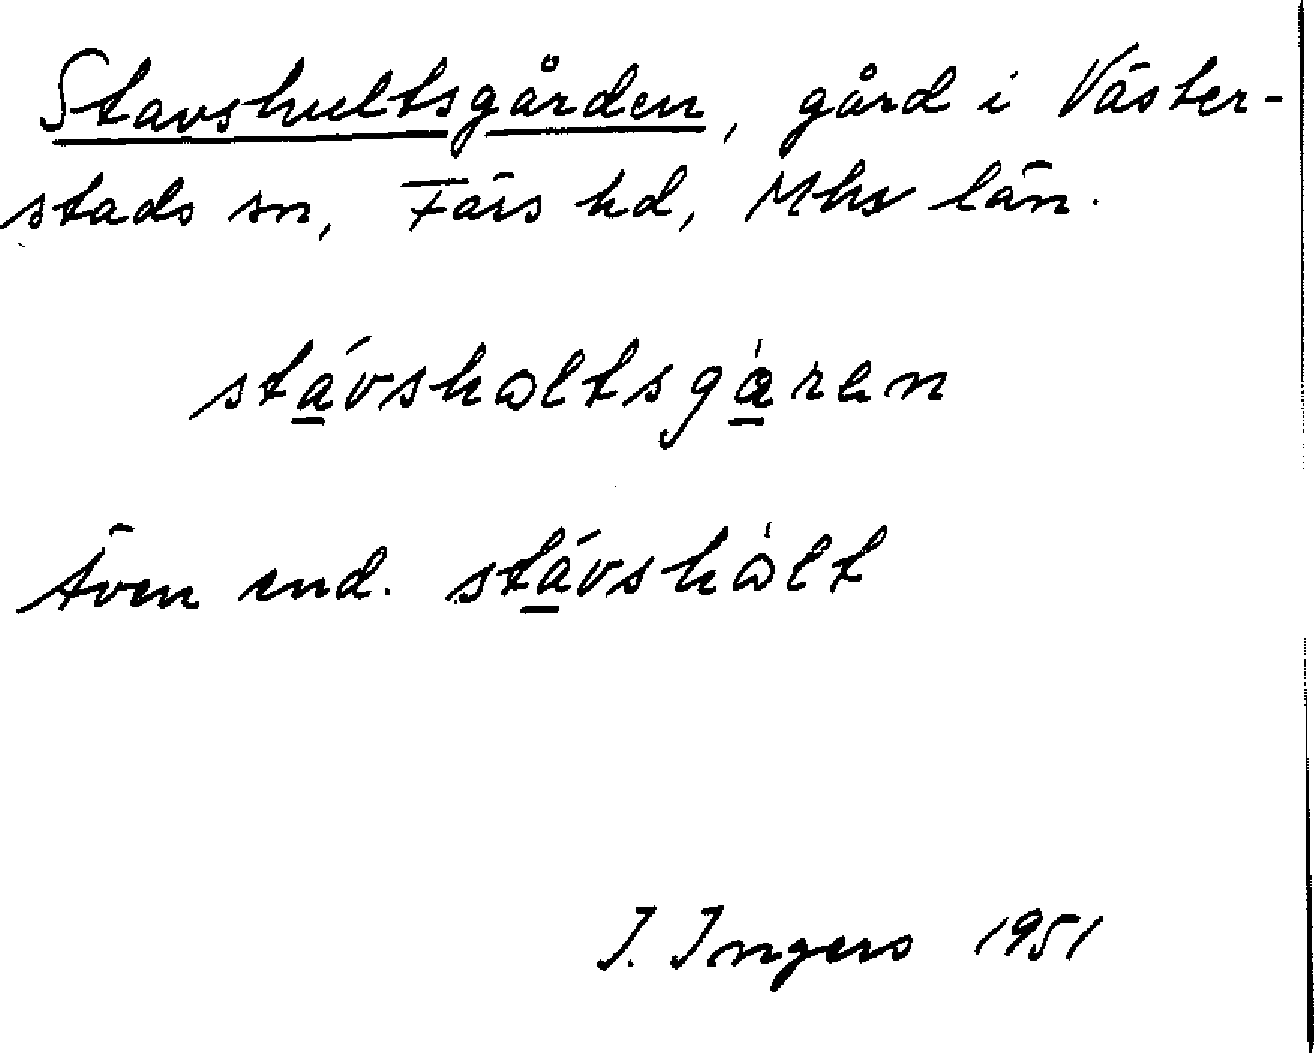 Stavshultsgården, gård i Väster-
stads sn, Färs hd, Mhs län.
stávshɷltsgæ̀ren
Även end. stávshɷ̀lt
I. Ingers 1951